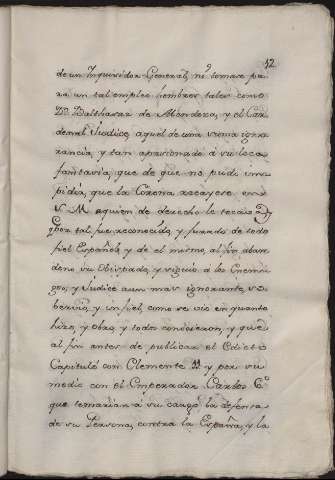 12
de un Inquisidor General, ni tomar pa
ra un tal empleo hombres tales como
Dn. Balthasar de Mendoza, y el Car
denal Judice, aquel de una suma igno
rancia, y tan apasionado á su loca
fantasia, que de que no pudo im
pidir, que la Corona recayese en
V. M. aquien de derecho le tocaba, y
por tal, fue reconocido, y jurado de todo
fiel Español, y de el mismo, al fin aban
dono su Obispado, y siguio a los Enemi
gos; y Judice aun mas ignorante, so
bervio, y infiel, como se vio en quanto
hizo, y obro, y todos conocieron, y que
al fin antes de publicar el Edicto
Capituló con Clemente 11 y por su
medio con el Emperador Carlos 6º
que tomarian á su cargo la defensa
de su Persona, contra la España, y la